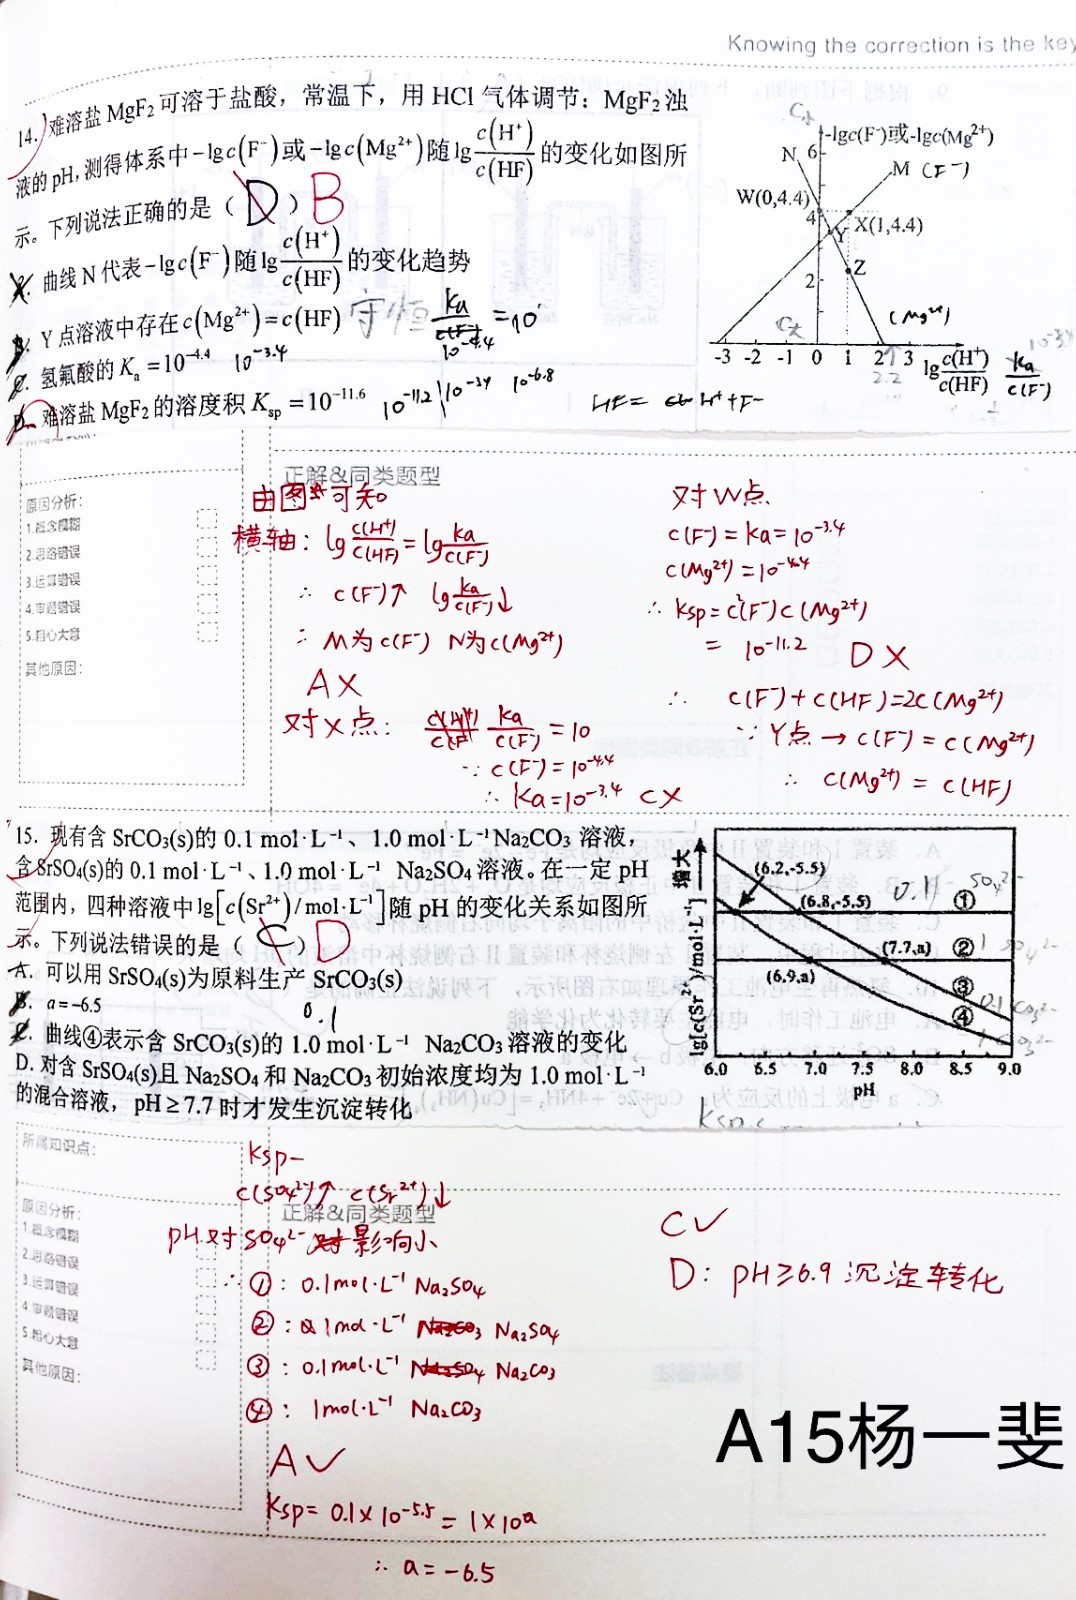 Knowing the correction is the key
14. 难溶盐 MgF2 可溶于盐酸，常温下，用 HCl 气体调节：MgF2 浊
液的 pH，测得体系中 -lgc(F⁻) 或 -lgc(Mg²⁺) 随 lg c(H⁺)/c(HF) 的变化如图所
示。下列说法正确的是（ D ）B
A. 曲线 N 代表 -lgc(F⁻) 随 lg c(H⁺)/c(HF) 的变化趋势
B. Y 点溶液中存在 c(Mg²⁺)=c(HF) 守恒 Ka/c(F⁻) =10
10^-4.4
C. 氢氟酸的 Ka=10^-4.4 10^-3.4
D. 难溶盐 MgF2 的溶度积 Ksp=10^-11.6 10^-11.2 10^-3.4 10^-6.8
HF= H⁺+F⁻
-lgc(F⁻)或-lgc(Mg²⁺)
N 6 M (F⁻)
W(0,4.4)
4 X(1,4.4)
Y
2 Z
(Mg²⁺)
-3 -2 -1 0 1 2 3 lg c(H⁺)/c(HF) Ka/c(F⁻)
2.2
正解&同类题型
原因分析：
1.概念模糊
2.思路错误
3.运算错误
4.审题错误
5.粗心大意
其他原因：
由图可知
横轴：lg c(H⁺)/c(HF) = lg Ka/c(F⁻)
∴ c(F⁻)↑ lg Ka/c(F⁻)↓
∴ M为c(F⁻) N为c(Mg²⁺)
A X
对X点： Ka/c(F⁻) = 10
∵ c(F⁻)=10^-4.4
∴ Ka=10^-3.4 C X
对W点
c(F⁻)=Ka=10^-3.4
c(Mg²⁺)=10^-4.4
∴ Ksp=c²(F⁻)c(Mg²⁺)
= 10^-11.2 D X
∴ c(F⁻)+c(HF)=2c(Mg²⁺)
∵ Y点 → c(F⁻)=c(Mg²⁺)
∴ c(Mg²⁺) = c(HF)
15. 现有含 SrCO3(s)的 0.1 mol·L⁻¹、1.0 mol·L⁻¹Na2CO3 溶液，
含 SrSO4(s)的 0.1 mol·L⁻¹、1.0 mol·L⁻¹ Na2SO4 溶液。在一定 pH
范围内，四种溶液中 lg[c(Sr²⁺)/mol·L⁻¹] 随 pH 的变化关系如图所
示。下列说法错误的是（ C ）D
A. 可以用 SrSO4(s)为原料生产 SrCO3(s)
B. a=-6.5
0.1
C. 曲线④表示含 SrCO3(s)的 1.0 mol·L⁻¹ Na2CO3 溶液的变化
D. 对含 SrSO4(s)且 Na2SO4 和 Na2CO3 初始浓度均为 1.0 mol·L⁻¹
的混合溶液，pH≥7.7 时才发生沉淀转化
增大
lg[c(Sr²⁺)/mol·L⁻¹]
(6.2,-5.5)
(6.8,-5.5) 0.1 SO4²⁻
①
② 1 SO4²⁻
(7.7,a)
(6.9,a)
③ 0.1 CO3²⁻
④
6.0 6.5 7.0 7.5 8.0 8.5 9.0
pH
Ksp
所属知识点：
原因分析：
1.概念模糊
2.思路错误
3.运算错误
4.审题错误
5.粗心大意
其他原因：
正解&同类题型
Ksp-
c(SO4²⁻)↑ c(Sr²⁺)↓
pH对SO4²⁻影响小
∴ ①：0.1mol·L⁻¹ Na2SO4
②：1mol·L⁻¹ Na2SO4
③：0.1mol·L⁻¹ Na2CO3
④：1mol·L⁻¹ Na2CO3
A ✓
Ksp= 0.1×10^-5.5 = 1×10^a
∴ a=-6.5
C ✓
D：pH≥6.9 沉淀转化
A15杨一斐